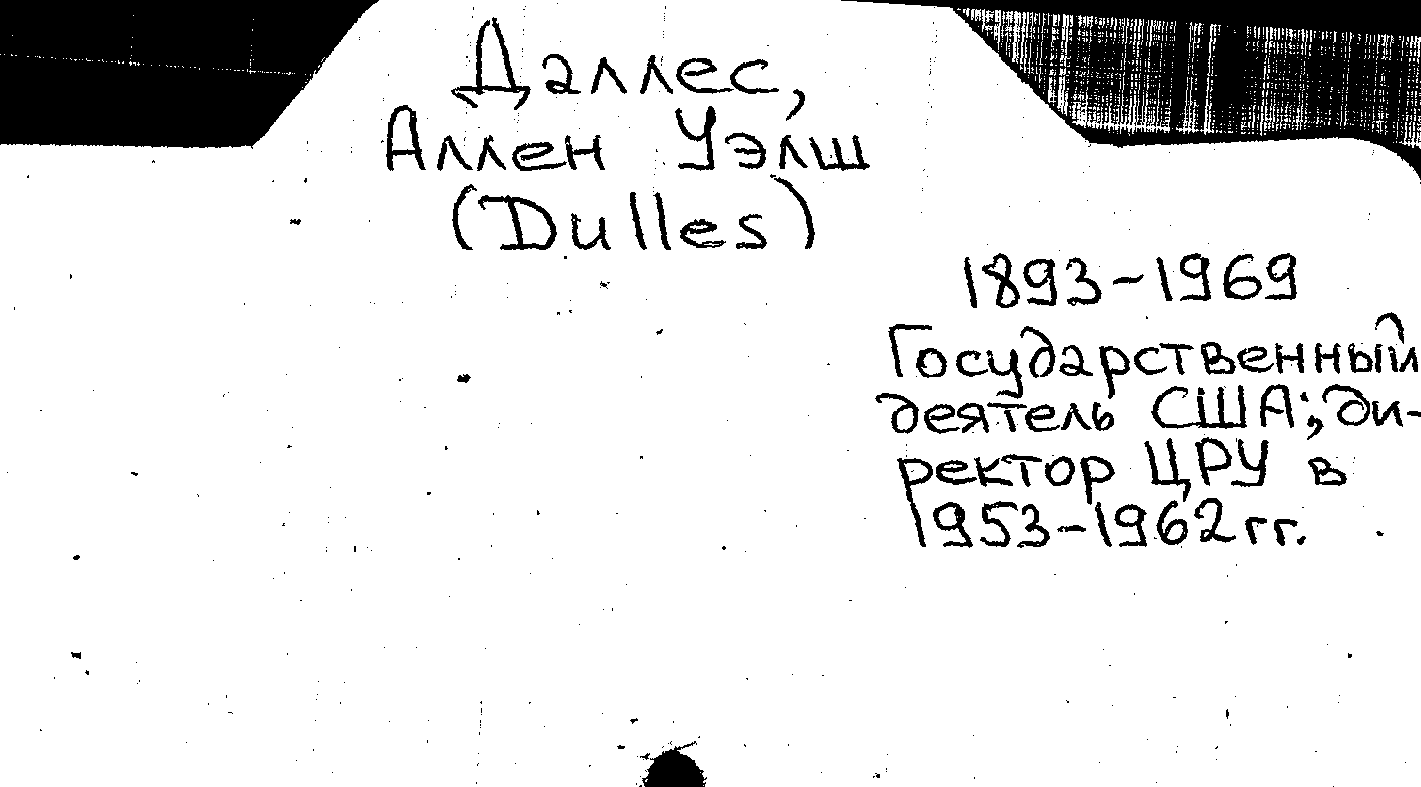 Даллес,
Аллен Уэлш
(Dulles)
1893-1969
Государственный
деятель США; ди-
ректор ЦРУ в
1953-1962 гг.